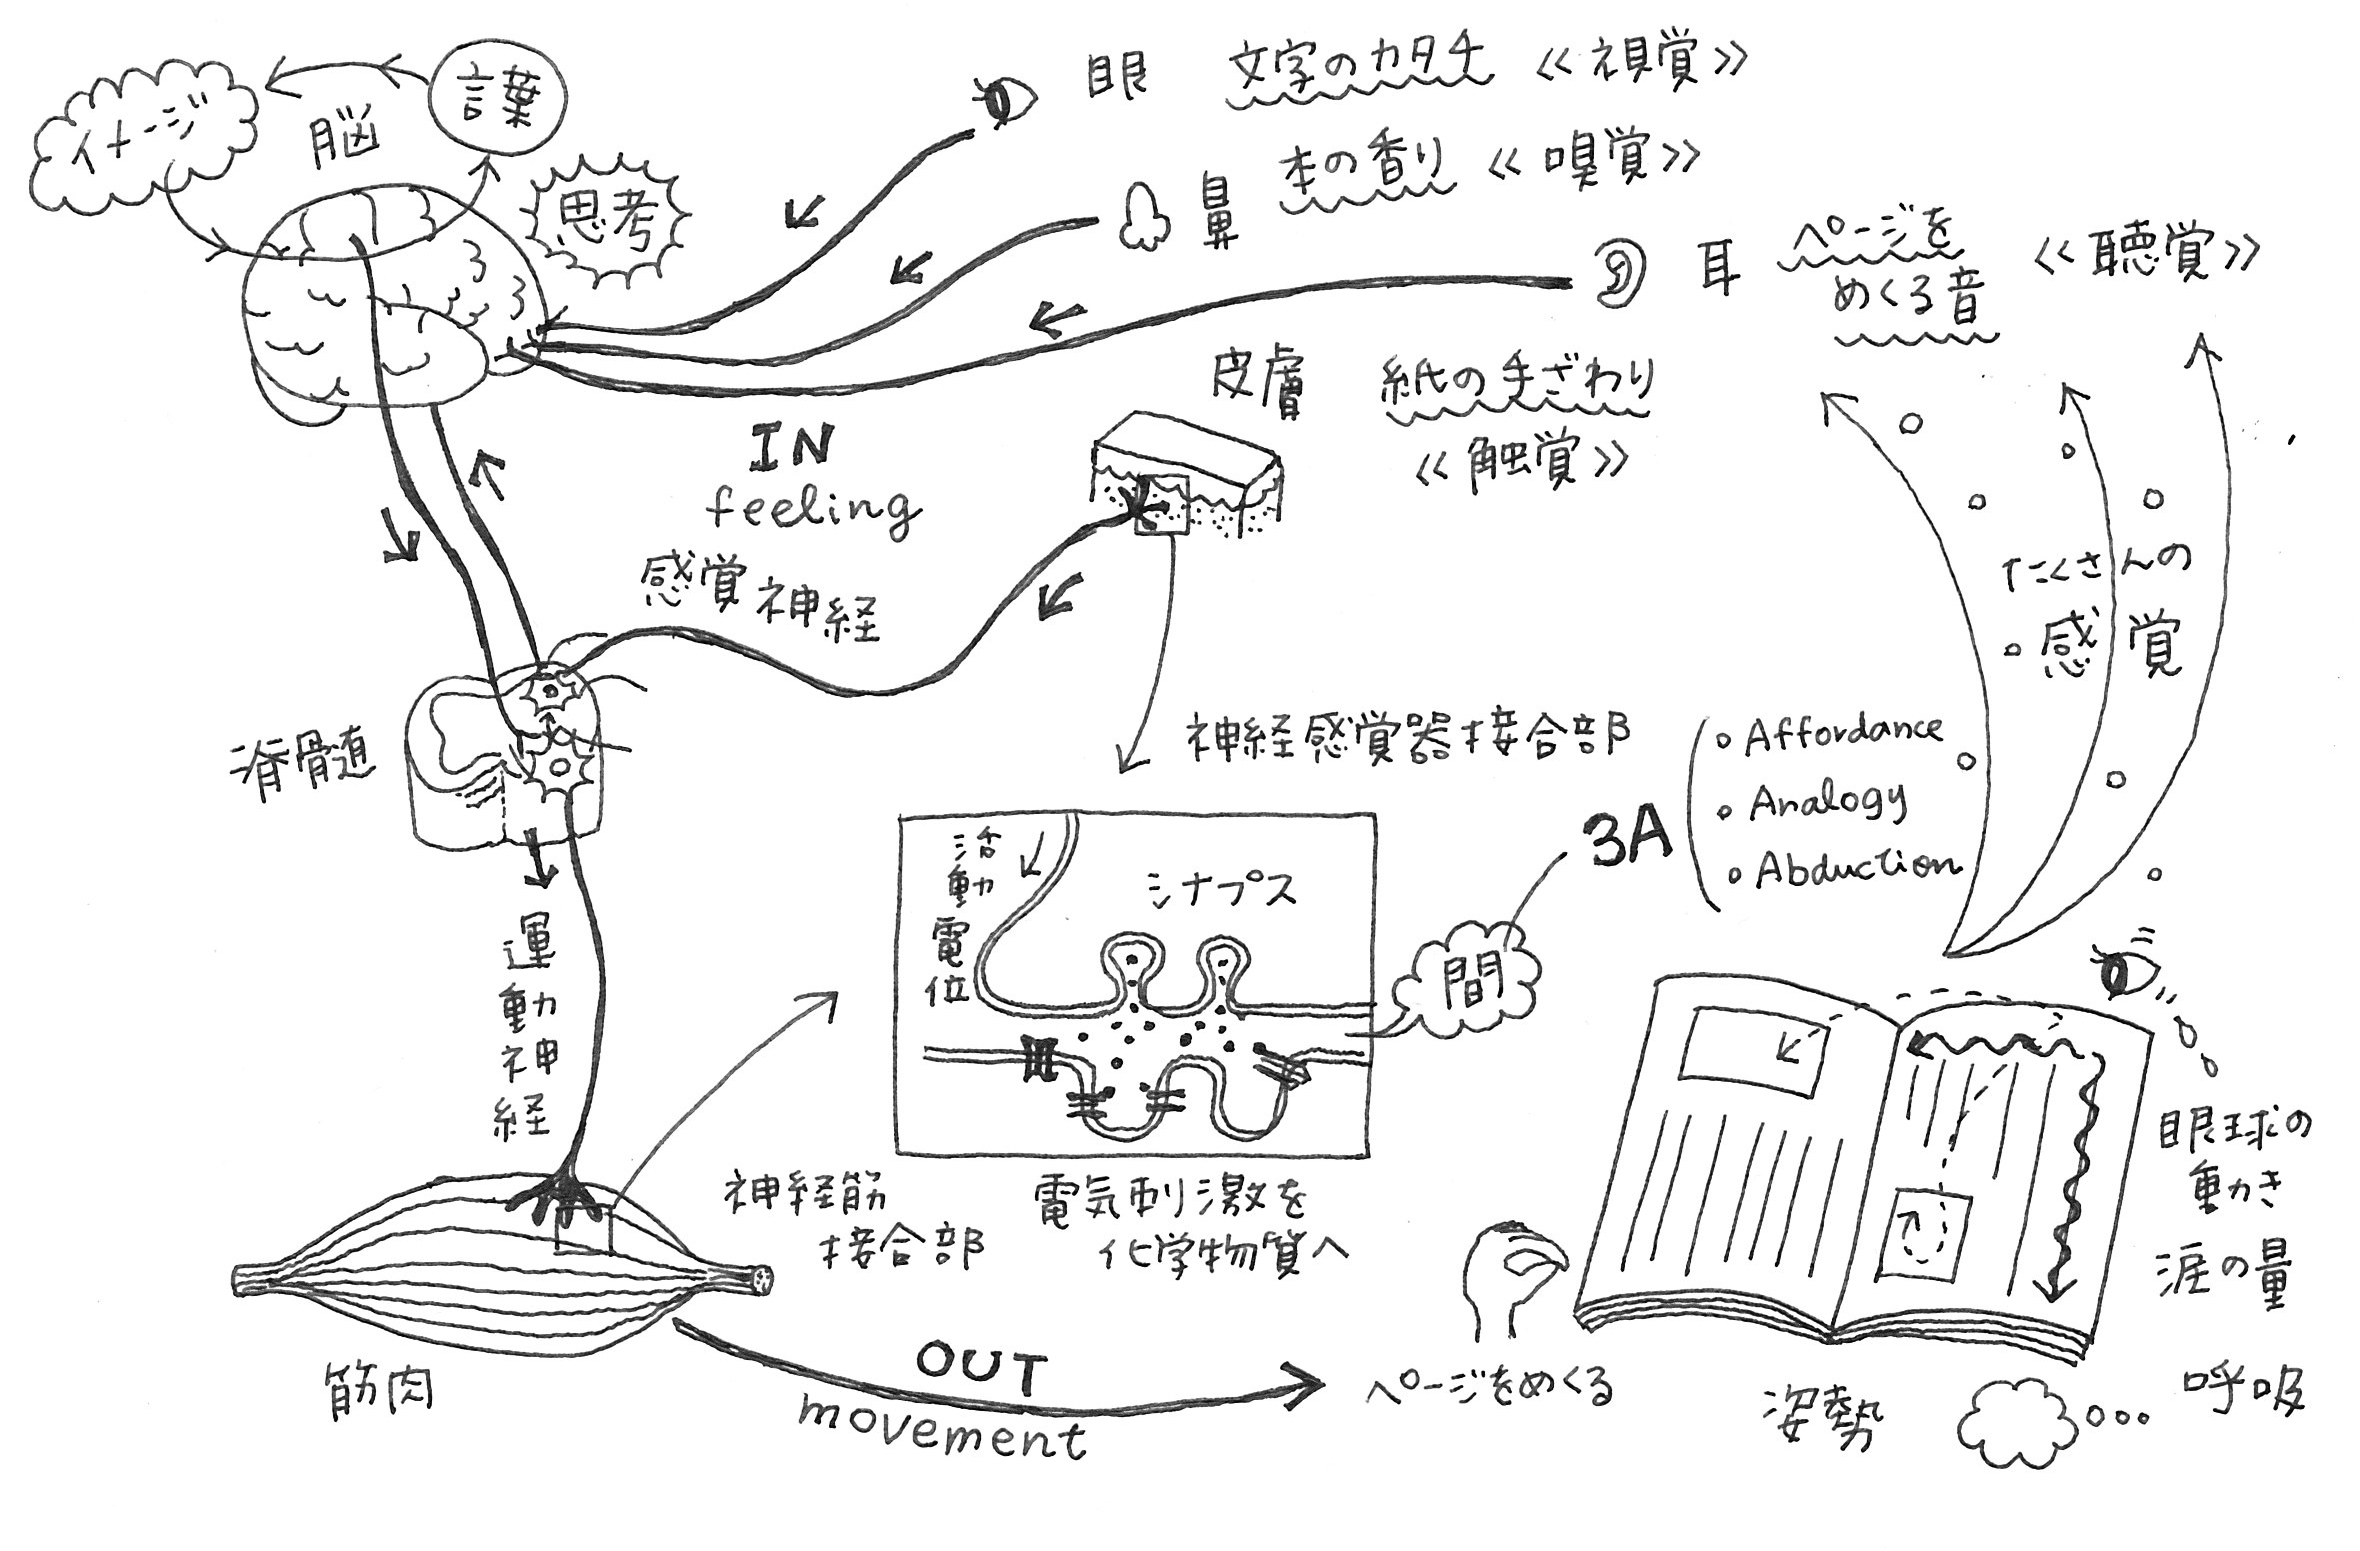 イメージ
脳
言葉
思考
眼 文字のカタチ 《視覚》
鼻 本の香り 《嗅覚》
耳 ページを
めくる音 《聴覚》
皮膚 紙の手ざわり
《触覚》
IN
feeling
感覚神経
たくさんの
感覚
脊髄
神経感覚器接合部
3A
・Affordance
・Analogy
・Abduction
活動電位
シナプス
間
運動神経
神経筋
接合部
電気刺激を
化学物質へ
筋肉
OUT
movement
ページをめくる
眼球の
動き
涙の量
姿勢
呼吸